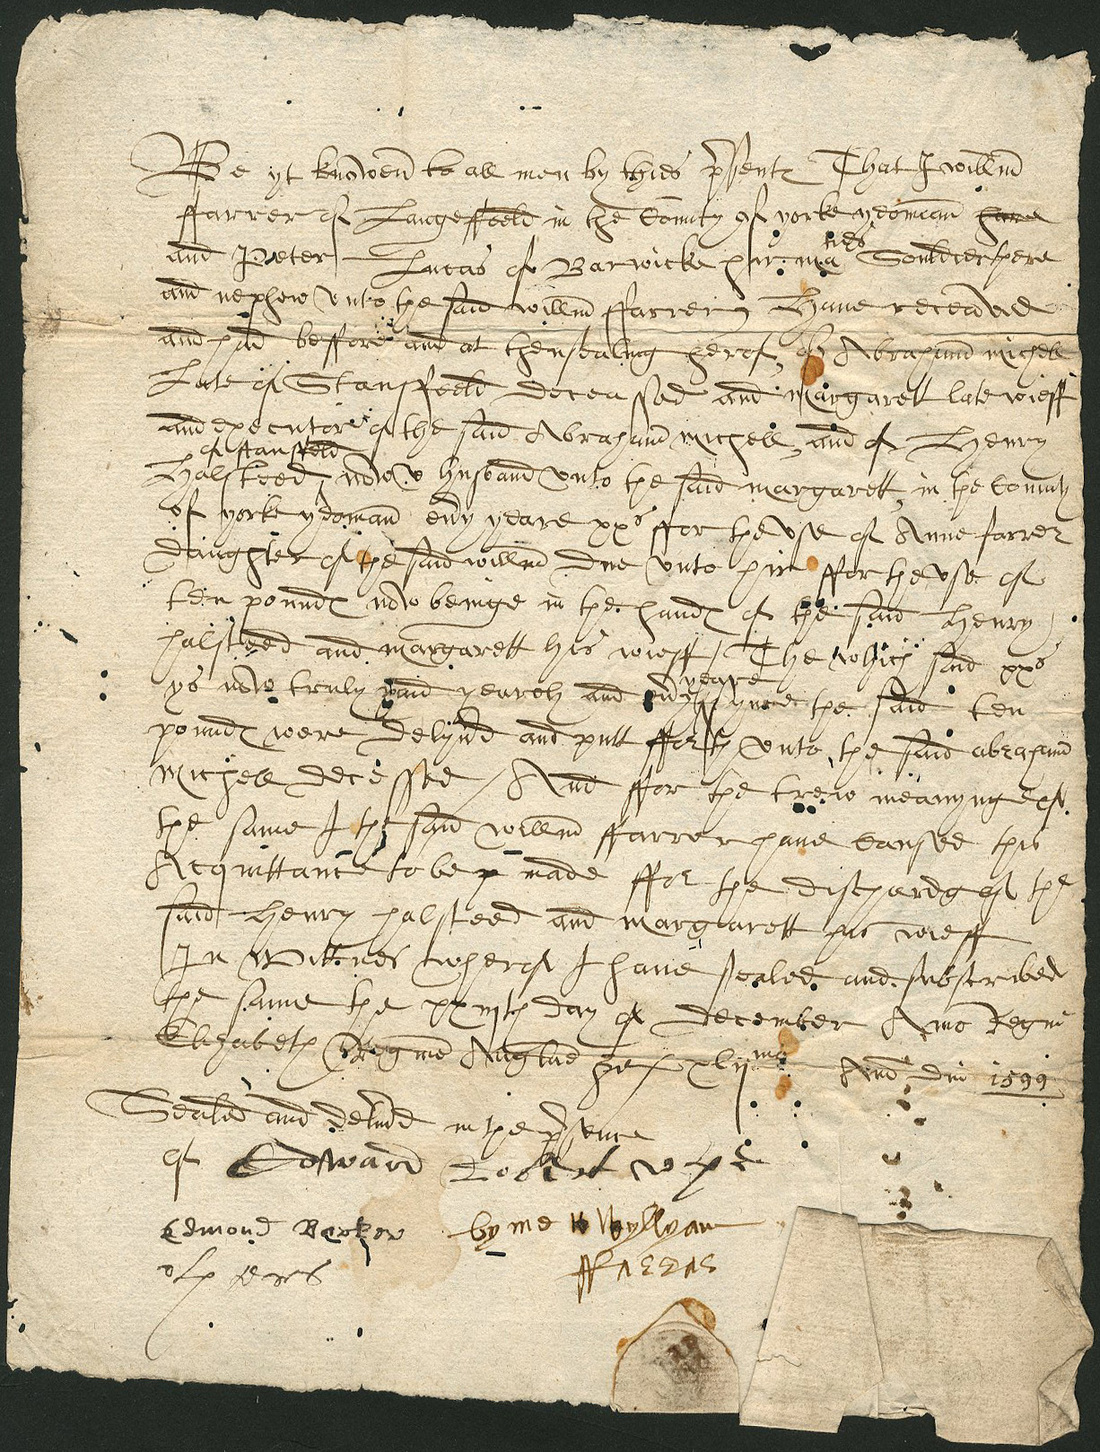 Be yt knowen to all men by theis p̃sents That I willm̃
ffarrer of Langeffeeld in the County of yorke yeoman have
and Peter Lucas of Barwicke her ma ties Souldier there
and nephew unto the said willm̃ ffarrer Have receaved
and had beffore and at thensealing herof, of Abraham Michell
Late of Stansffeeld deceassed and Margarett late wieff
and executor of the said Abraham Michell, and of Henry
of stansffeld
Halsteed, nowe husband unto the said margarett, in the County
of yorke yeoman eṽy yeare xxs ffor the use of Anne farrer
daughter of the said willm̃ due unto hir ffor the use of
ten pounds now beinge in the hands of the said Henry
halsteed and margarett his wieff / The which said xxs
yeare
ys now truly paid yearely and eṽy synce the said ten
pounds were delyṽd and putt fforth unto the said abraham
Michell decessed / And ffor the trew meanynge of
the same I the said willm̃ ffarrer have caused this
Acquittance to be made ffor the dischardg of the
said Henry halsteed and margarett his wieff
In Wittnes wherof I have sealed and subscribed
the same the day of december Anno Regni
Elizabeth Regine Anglie &c xlijmo Anno dm̃ 1599
Sealed and delyṽd in the p̃sence
of Edward
Edmond Barker by me Wyllyam
ffarrar